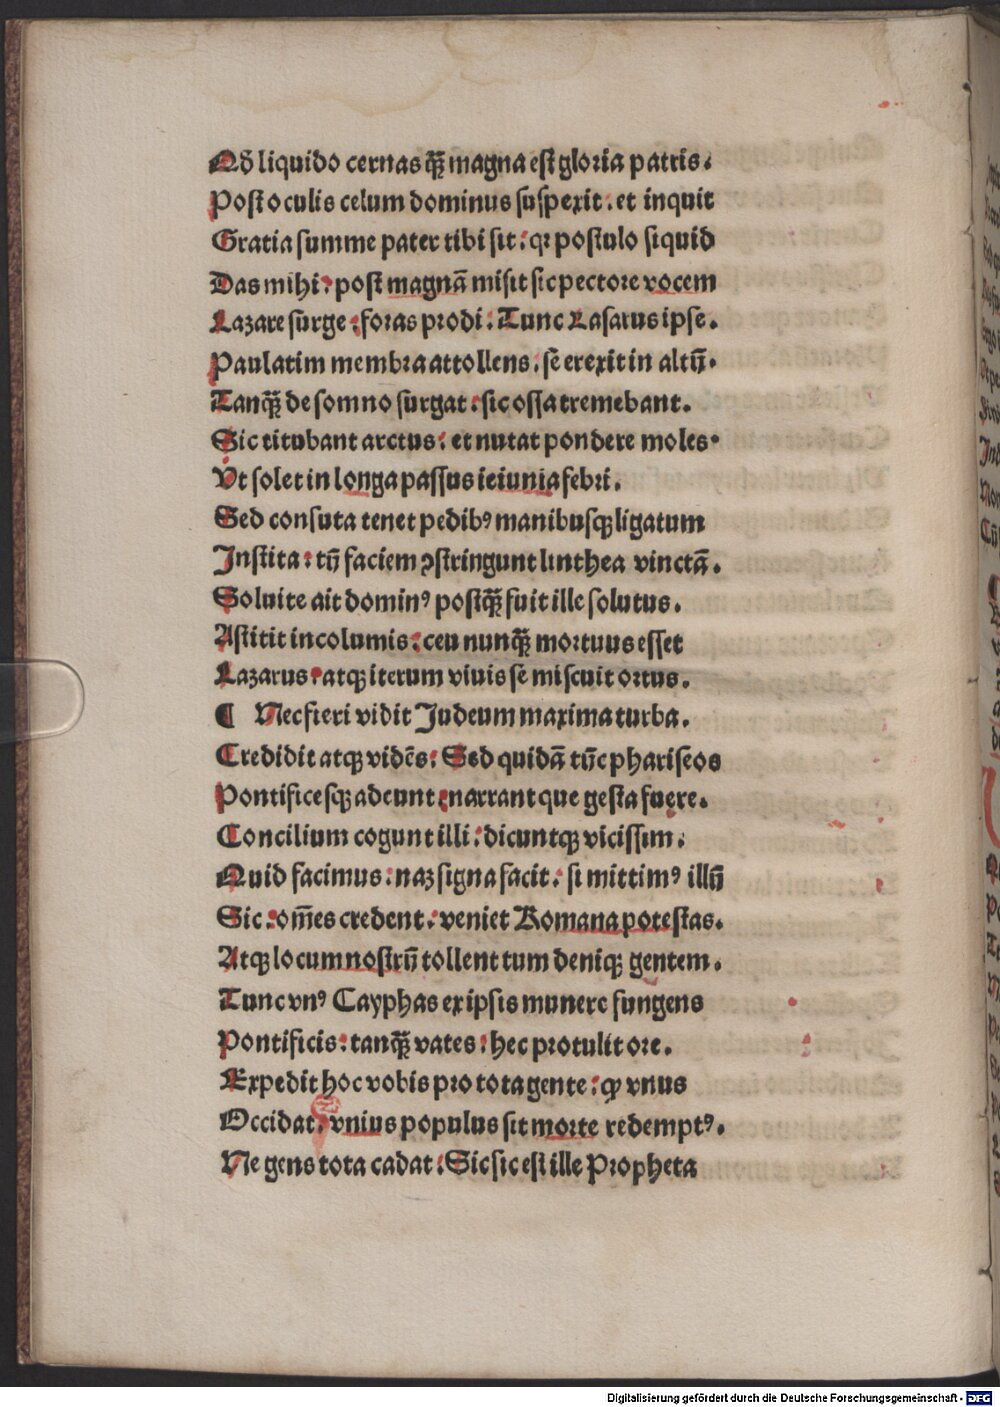 Qď liquido cernas qꝫ̃ magna est gloria patris.
Post oculis celum dominus suspexit. et inquit
Gratia summe pater tibi sit: qꝛ postulo siquid
Das mihi: post magnã misit sic pectore vocem
Lazare surge: foras prodi: Tunc Lasarus ipse.
Paulatim membra attollens. sẽ erexit in altũ.
Tanqꝫ̃ de somno surgat: sic ossa tremebant.
Sic titubant arctus: et nutat pondere moles.
Vt solet in longa passus ieiunia febri.
Sed consuta tenet pedibꝰ manibusqꝫ ligatum
Instita: tũ faciem ꝯstringunt linthea vinctã.
Soluite ait dominꝰ postqꝫ̃ fuit ille solutus.
Astitit incolumis: ceu nunqꝫ̃ mortuus esset
Lazarus: atqꝫ iterum viuis se miscuit ortus.
¶ Nec fieri vidit Judeum maxima turba.
Credidit atqꝫ vidẽs: Sed quidã tũc phariseos
Pontificesqꝫ adeunt: narrant que gesta fuere.
Concilium cogunt illi: dicuntqꝫ vicissim.
Quid facimus: naꝫ signa facit: si mittimꝰ illũ
Sic: om̃es credent: veniet Romana potestas.
Atqꝫ locum nostrũ tollent tum deniqꝫ gentem.
Tunc vnꝰ Cayphas ex ipsis munere fungens
Pontificis: tanqꝫ̃ vates: hec protulit ore.
Expedit hoc vobis pro tota gente: ꝙ vnus
Occidat. vnius populus sit morte redemptꝰ.
Ne gens tota cadat: Sic sic est ille Propheta
Digitalisierung gefördert durch die Deutsche Forschungsgemeinschaft - DFG